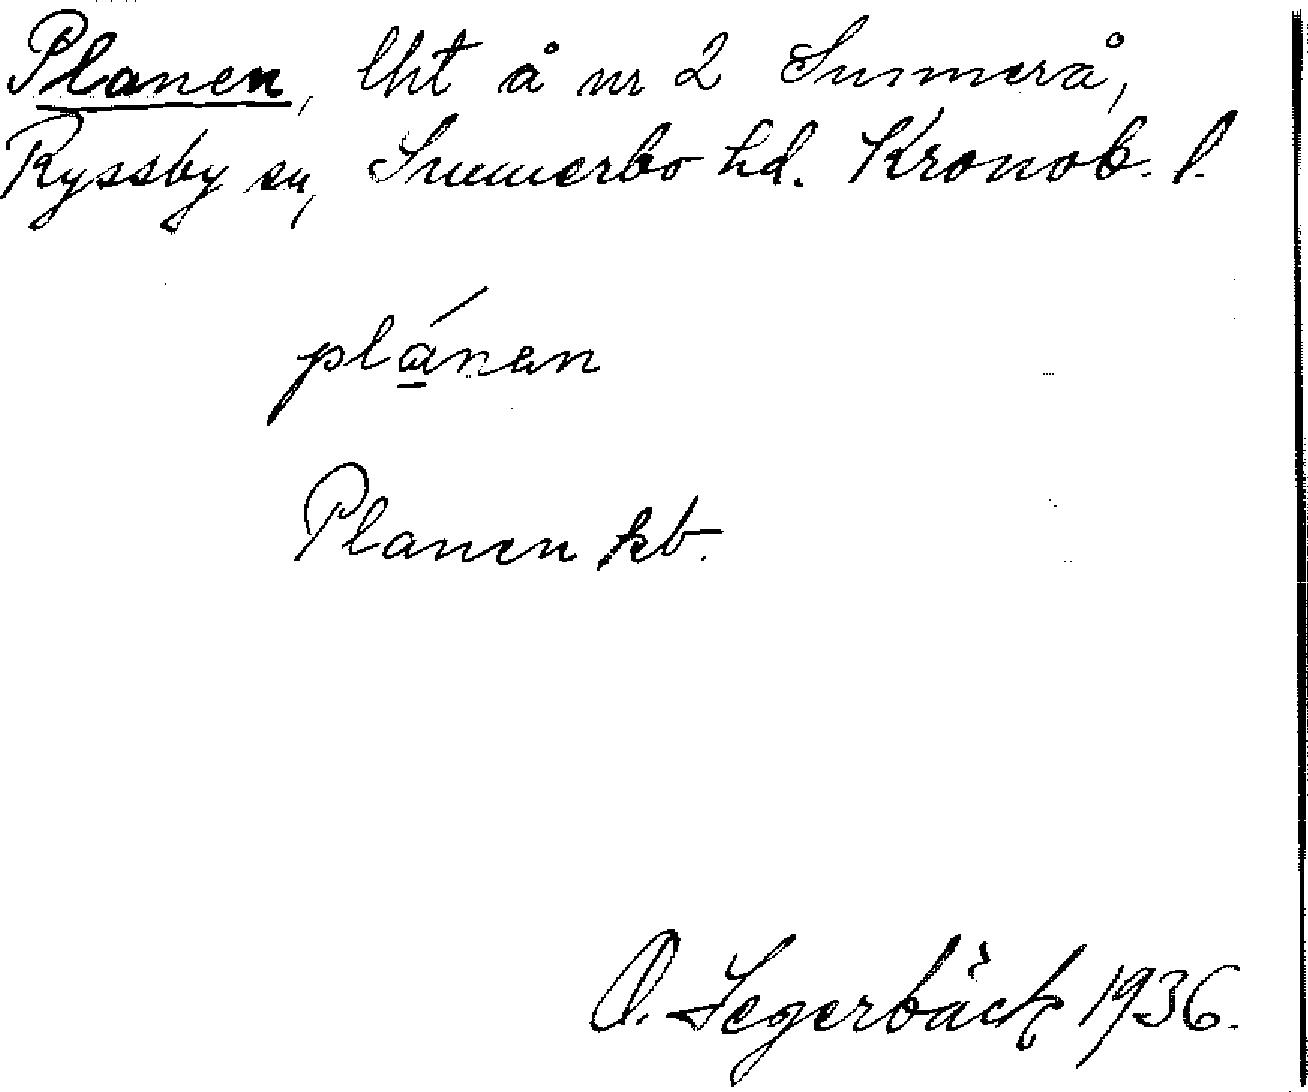 Planen, lht å nr 2 Sunnerå,
Ryssby sn, Sunnerbo hd. Kronob. l.
plánen
Planen kb.
O. Segerbäck 1936.